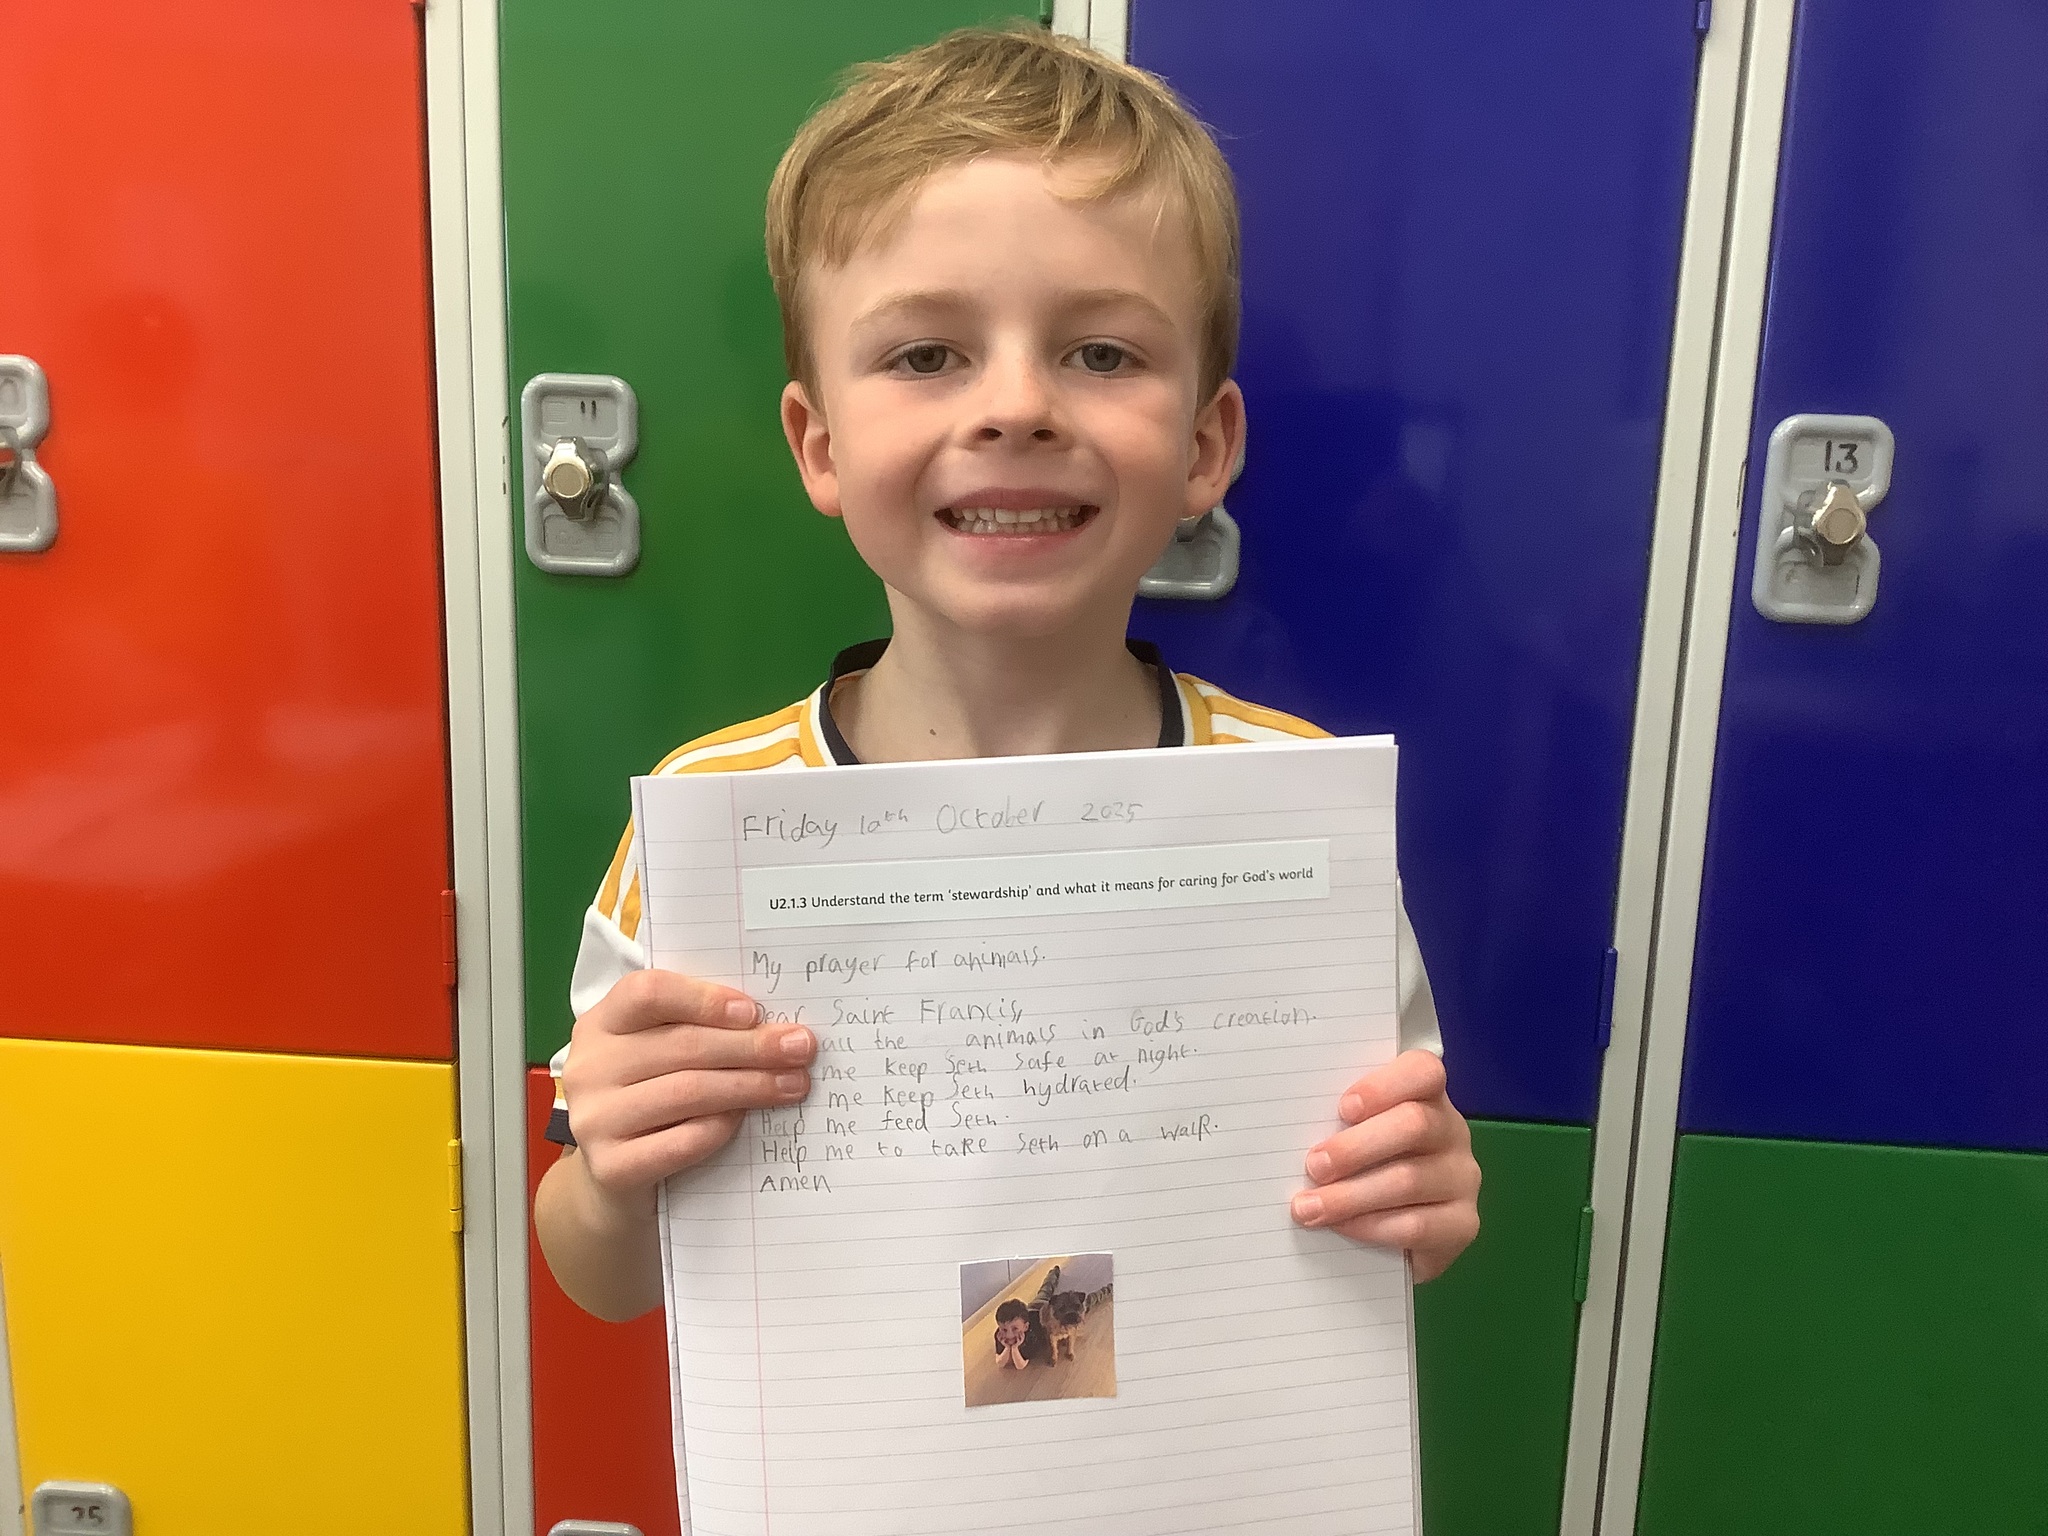 11
13
Friday 10th October 2025
U2.1.3 Understand the term 'stewardship' and what it means for caring for God's world
My prayer for animals.
Dear Saint Francis,
all the animals in God's creation.
me keep Seth safe at night.
me keep Seth hydrated.
Help me feed Seth.
Help me to take Seth on a walk.
Amen
35